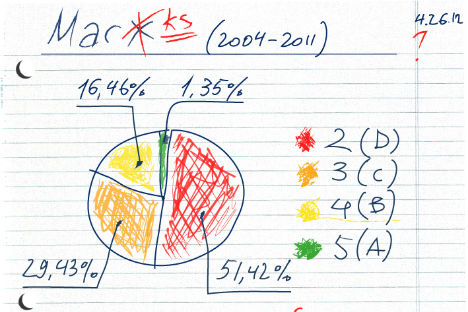 Marks (2004-2011)
4.26.12
?
16,46% 1,35%
2 (D)
3 (C)
4 (B)
5 (A)
29,43% 51,42%